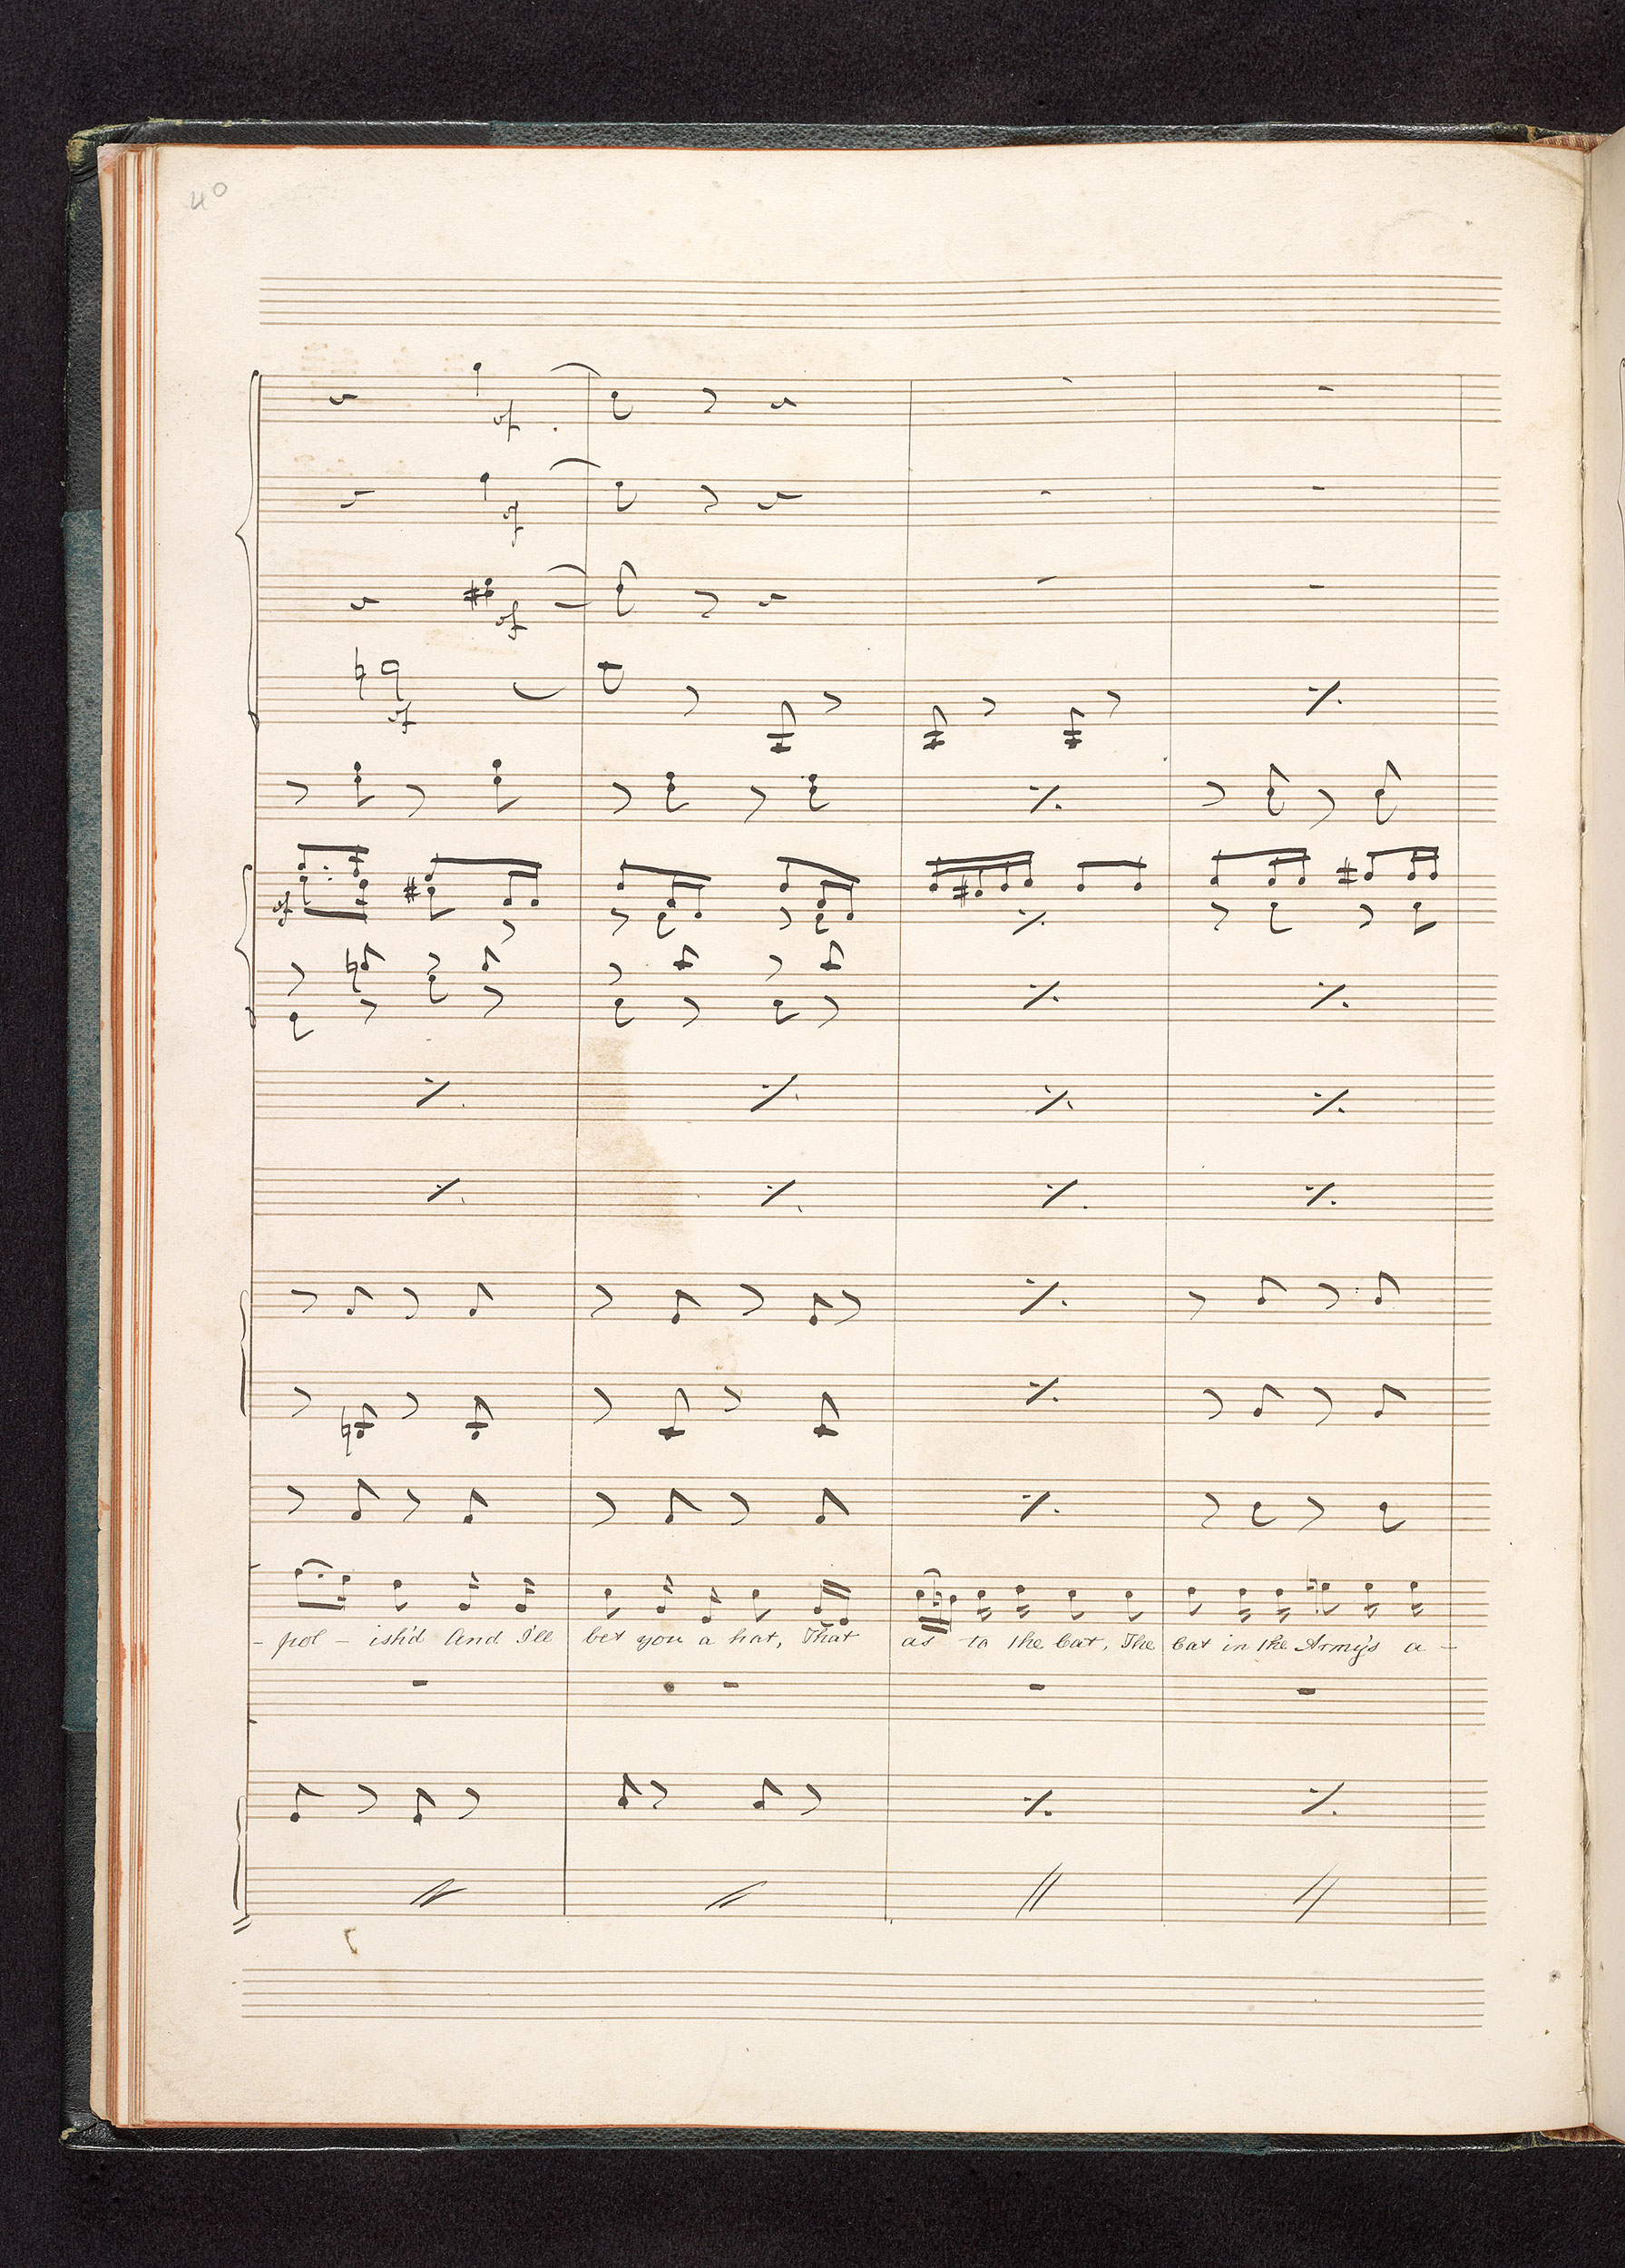 40
sf
sf
sf
sf
sf
- pol - ish'd And I'll bet you a hat, That as to the Cat, The Cat in the Army's a -